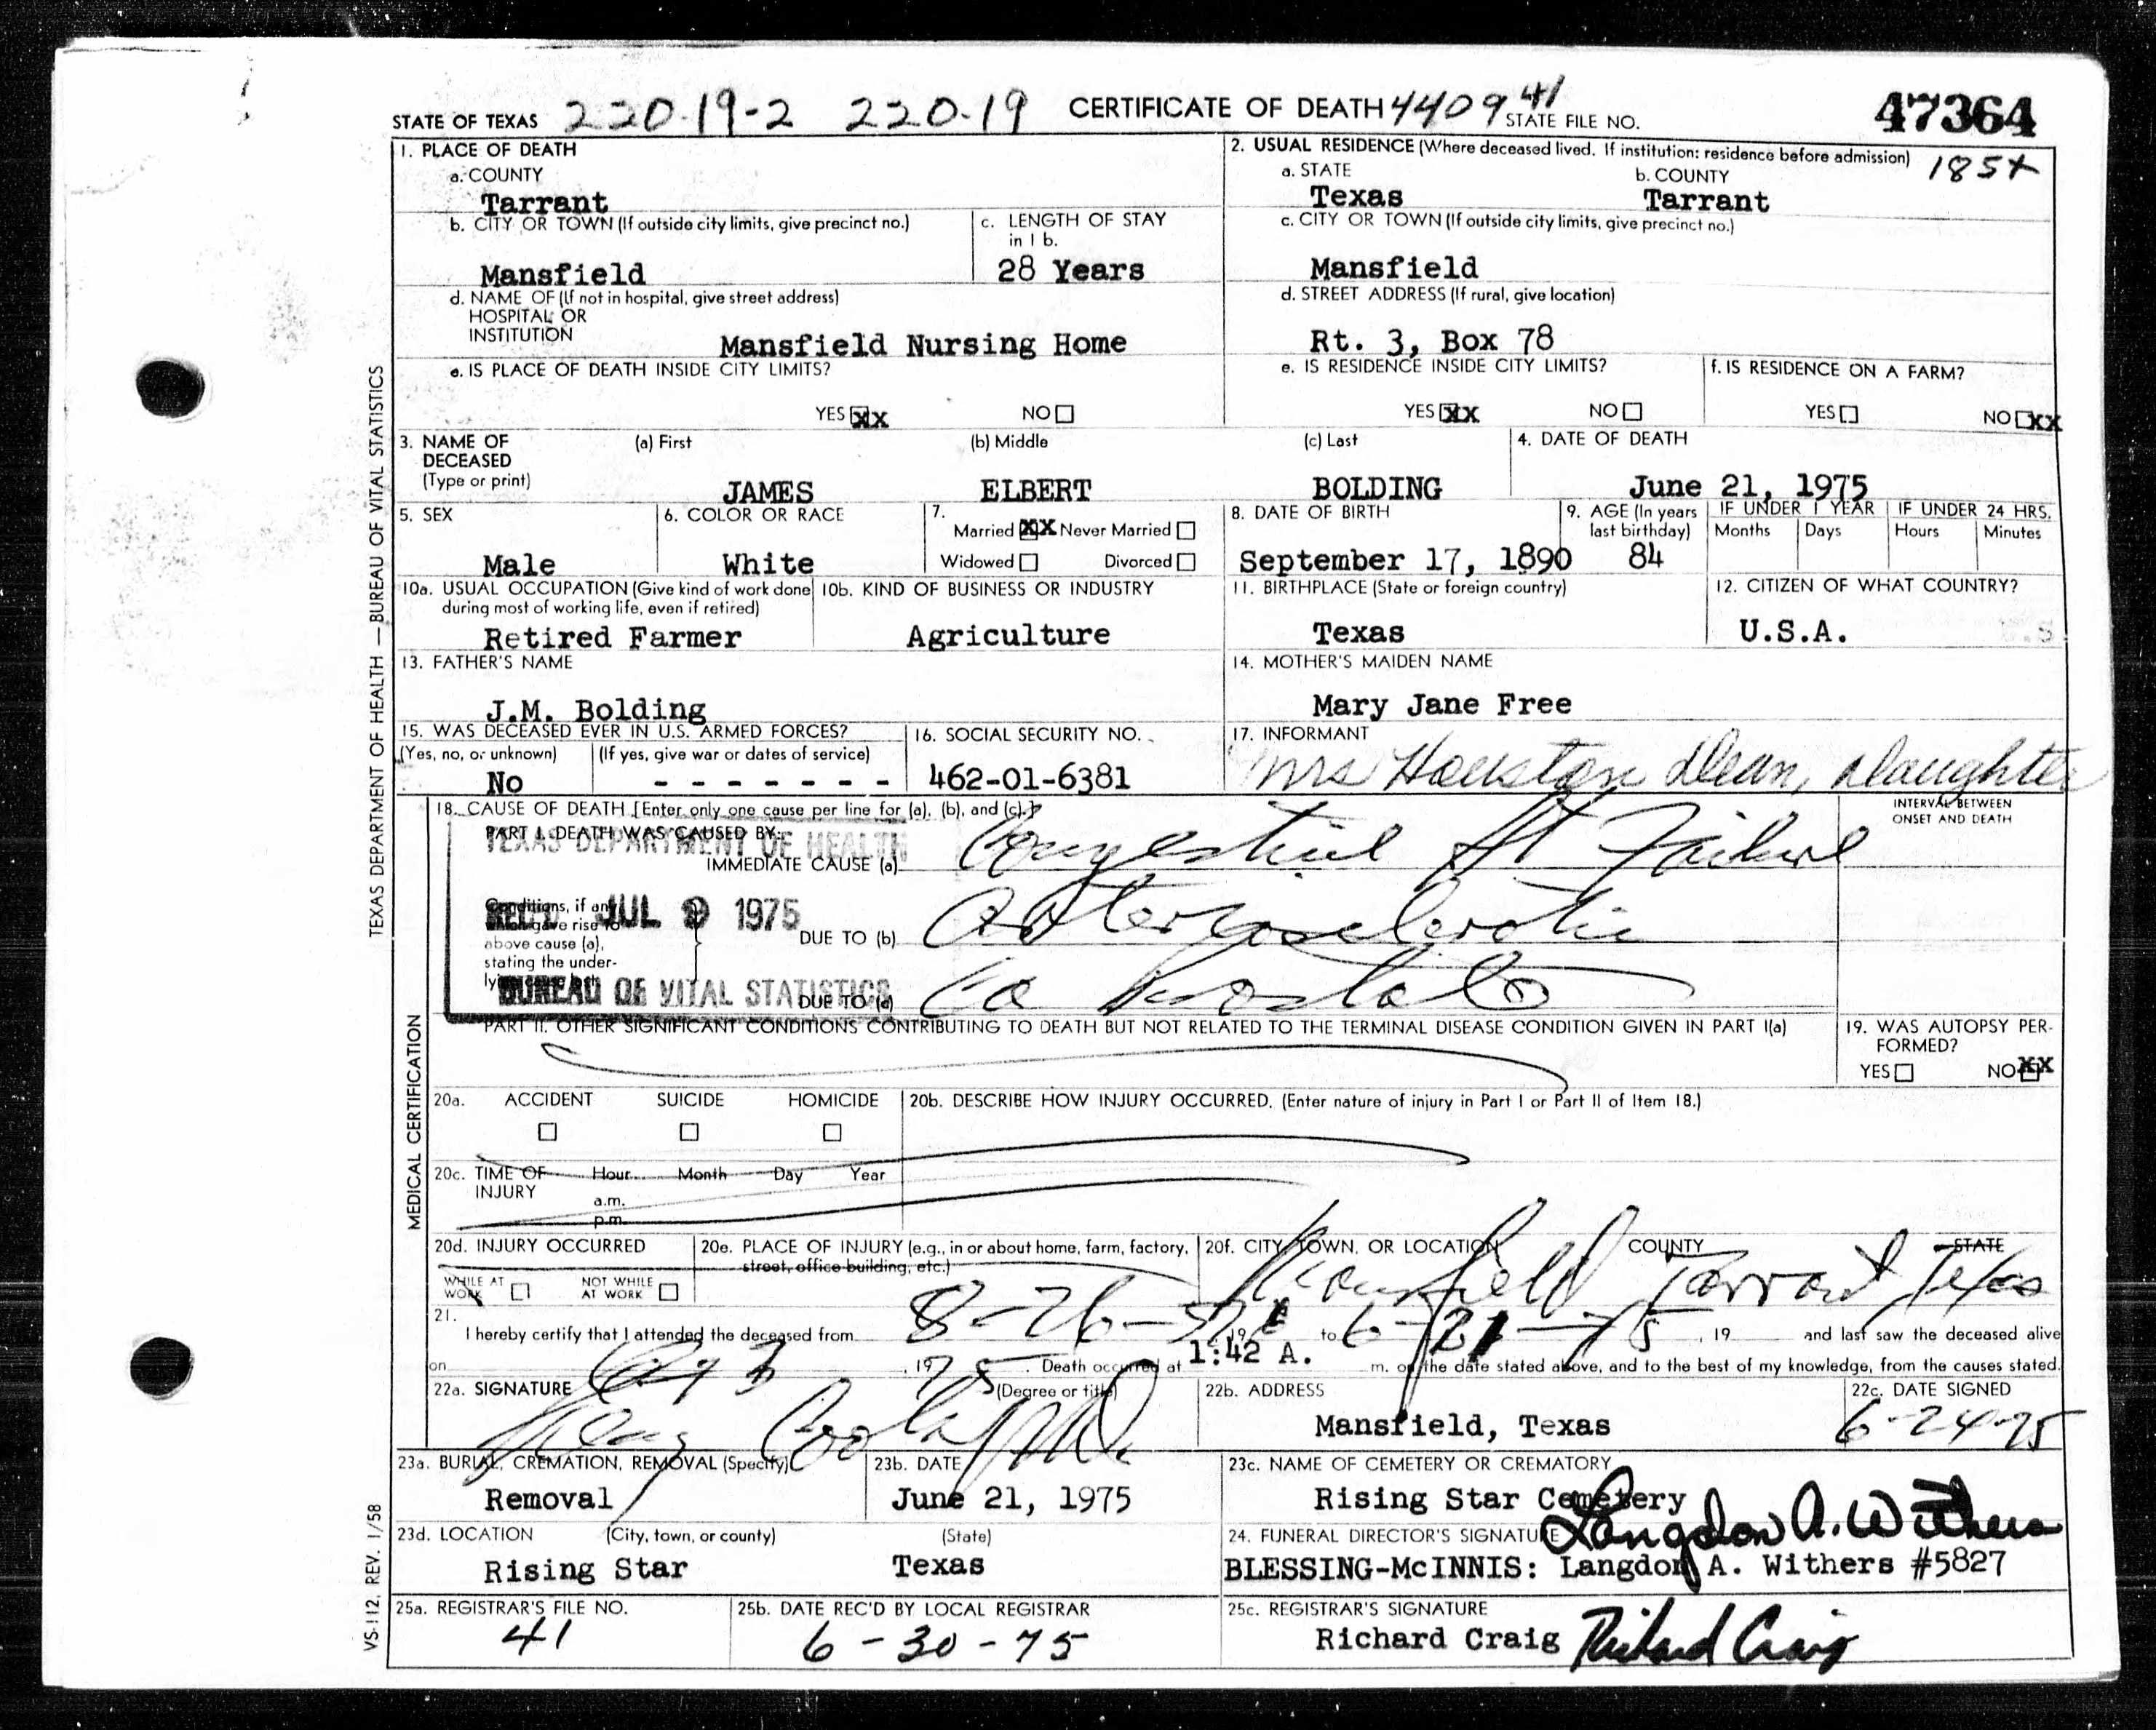 STATE OF TEXAS 220-19-2 220-19 CERTIFICATE OF DEATH 4409 41 STATE FILE NO. 47364
1. PLACE OF DEATH
a. COUNTY
Tarrant
2. USUAL RESIDENCE (Where deceased lived. If institution: residence before admission)
a. STATE b. COUNTY
Texas Tarrant
b. CITY OR TOWN (If outside city limits, give precinct no.)
Mansfield
c. LENGTH OF STAY in 1 b.
28 Years
c. CITY OR TOWN (If outside city limits, give precinct no.)
Mansfield
d. NAME OF (If not in hospital, give street address)
HOSPITAL OR
INSTITUTION
Mansfield Nursing Home
d. STREET ADDRESS (If rural, give location)
Rt. 3, Box 78
e. IS PLACE OF DEATH INSIDE CITY LIMITS?
YES XX NO
e. IS RESIDENCE INSIDE CITY LIMITS?
YES XX NO
f. IS RESIDENCE ON A FARM?
YES NO XX
3. NAME OF DECEASED (Type or print)
(a) First (b) Middle (c) Last
JAMES ELBERT BOLDING
4. DATE OF DEATH
June 21, 1975
5. SEX
Male
6. COLOR OR RACE
White
7.
Married XX Never Married
Widowed Divorced
8. DATE OF BIRTH
September 17, 1890
9. AGE (In years last birthday)
84
IF UNDER 1 YEAR IF UNDER 24 HRS.
Months Days Hours Minutes
10a. USUAL OCCUPATION (Give kind of work done during most of working life, even if retired)
Retired Farmer
10b. KIND OF BUSINESS OR INDUSTRY
Agriculture
11. BIRTHPLACE (State or foreign country)
Texas
12. CITIZEN OF WHAT COUNTRY?
U.S.A.
13. FATHER'S NAME
J.M. Bolding
14. MOTHER'S MAIDEN NAME
Mary Jane Free
15. WAS DECEASED EVER IN U.S. ARMED FORCES?
(Yes, no, or unknown) (If yes, give war or dates of service)
No - - - - - - -
16. SOCIAL SECURITY NO.
462-01-6381
17. INFORMANT
Mrs Houston Dean, Daughter
18. CAUSE OF DEATH [Enter only one cause per line for (a), (b), and (c).]
INTERVAL BETWEEN
ONSET AND DEATH
PART I. DEATH WAS CAUSED BY:
TEXAS DEPARTMENT OF HEALTH
IMMEDIATE CAUSE (a) Congestive Ht Failure
Conditions, if any
which gave rise to
above cause (a),
stating the under-
lying cause last.
REC'D JUL 9 1975
DUE TO (b) Arteriosclerotic
BUREAU OF VITAL STATISTICS
DUE TO (c) Ca Prostate
PART II. OTHER SIGNIFICANT CONDITIONS CONTRIBUTING TO DEATH BUT NOT RELATED TO THE TERMINAL DISEASE CONDITION GIVEN IN PART I(a)
19. WAS AUTOPSY PER-
FORMED?
YES NO XX
20a. ACCIDENT SUICIDE HOMICIDE
20b. DESCRIBE HOW INJURY OCCURRED. (Enter nature of injury in Part I or Part II of Item 18.)
20c. TIME OF INJURY
Hour Month Day Year
a.m.
p.m.
20d. INJURY OCCURRED
WHILE AT WORK NOT WHILE AT WORK
20e. PLACE OF INJURY (e.g., in or about home, farm, factory, street, office building, etc.)
20f. CITY, TOWN, OR LOCATION COUNTY STATE
Mansfield Tarrant Texas
21.
I hereby certify that I attended the deceased from 19 to 6-21-75, 19 and last saw the deceased alive
on , 1975. Death occurred at 1:42 A. m. on the date stated above, and to the best of my knowledge, from the causes stated.
22a. SIGNATURE (Degree or title)
22b. ADDRESS
Mansfield, Texas
22c. DATE SIGNED
6-24-75
23a. BURIAL, CREMATION, REMOVAL (Specify)
Removal
23b. DATE
June 21, 1975
23c. NAME OF CEMETERY OR CREMATORY
Rising Star Cemetery
23d. LOCATION (City, town, or county) (State)
Rising Star Texas
24. FUNERAL DIRECTOR'S SIGNATURE Langdon A. Withers
BLESSING-McINNIS: Langdon A. Withers #5827
25a. REGISTRAR'S FILE NO.
41
25b. DATE REC'D BY LOCAL REGISTRAR
6-30-75
25c. REGISTRAR'S SIGNATURE
Richard Craig Richard Craig
TEXAS DEPARTMENT OF HEALTH — BUREAU OF VITAL STATISTICS
MEDICAL CERTIFICATION
VS-112, REV. 1/58